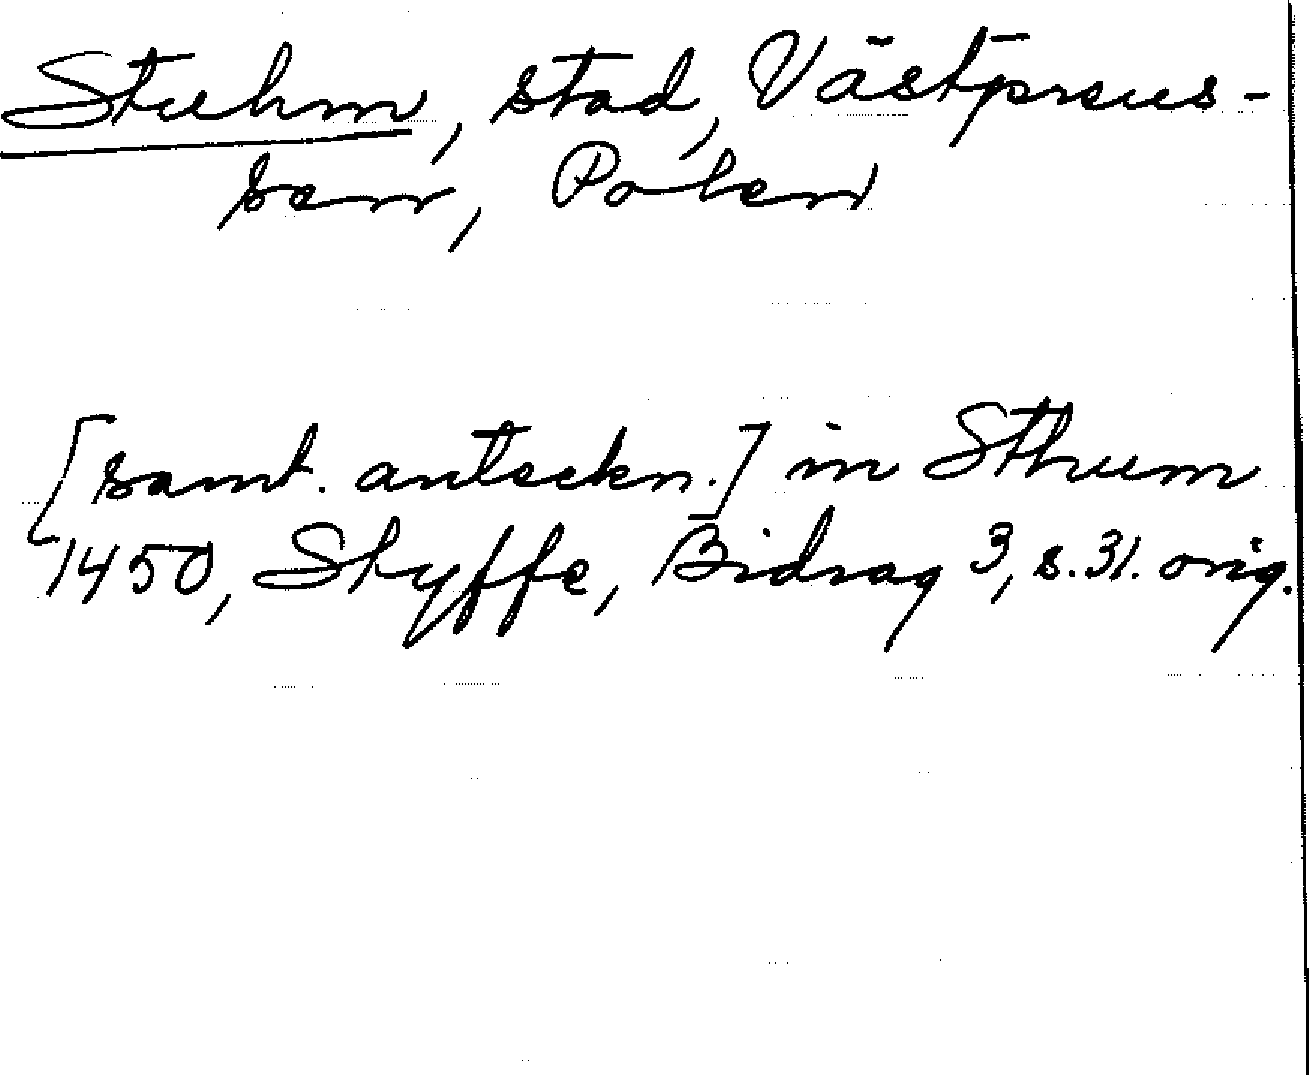 Stuhm, stad, Västpreus-
sen, Polen
[samt. anteckn.] in Sthum
1450, Styffe, Bidrag 3, s. 31. orig.